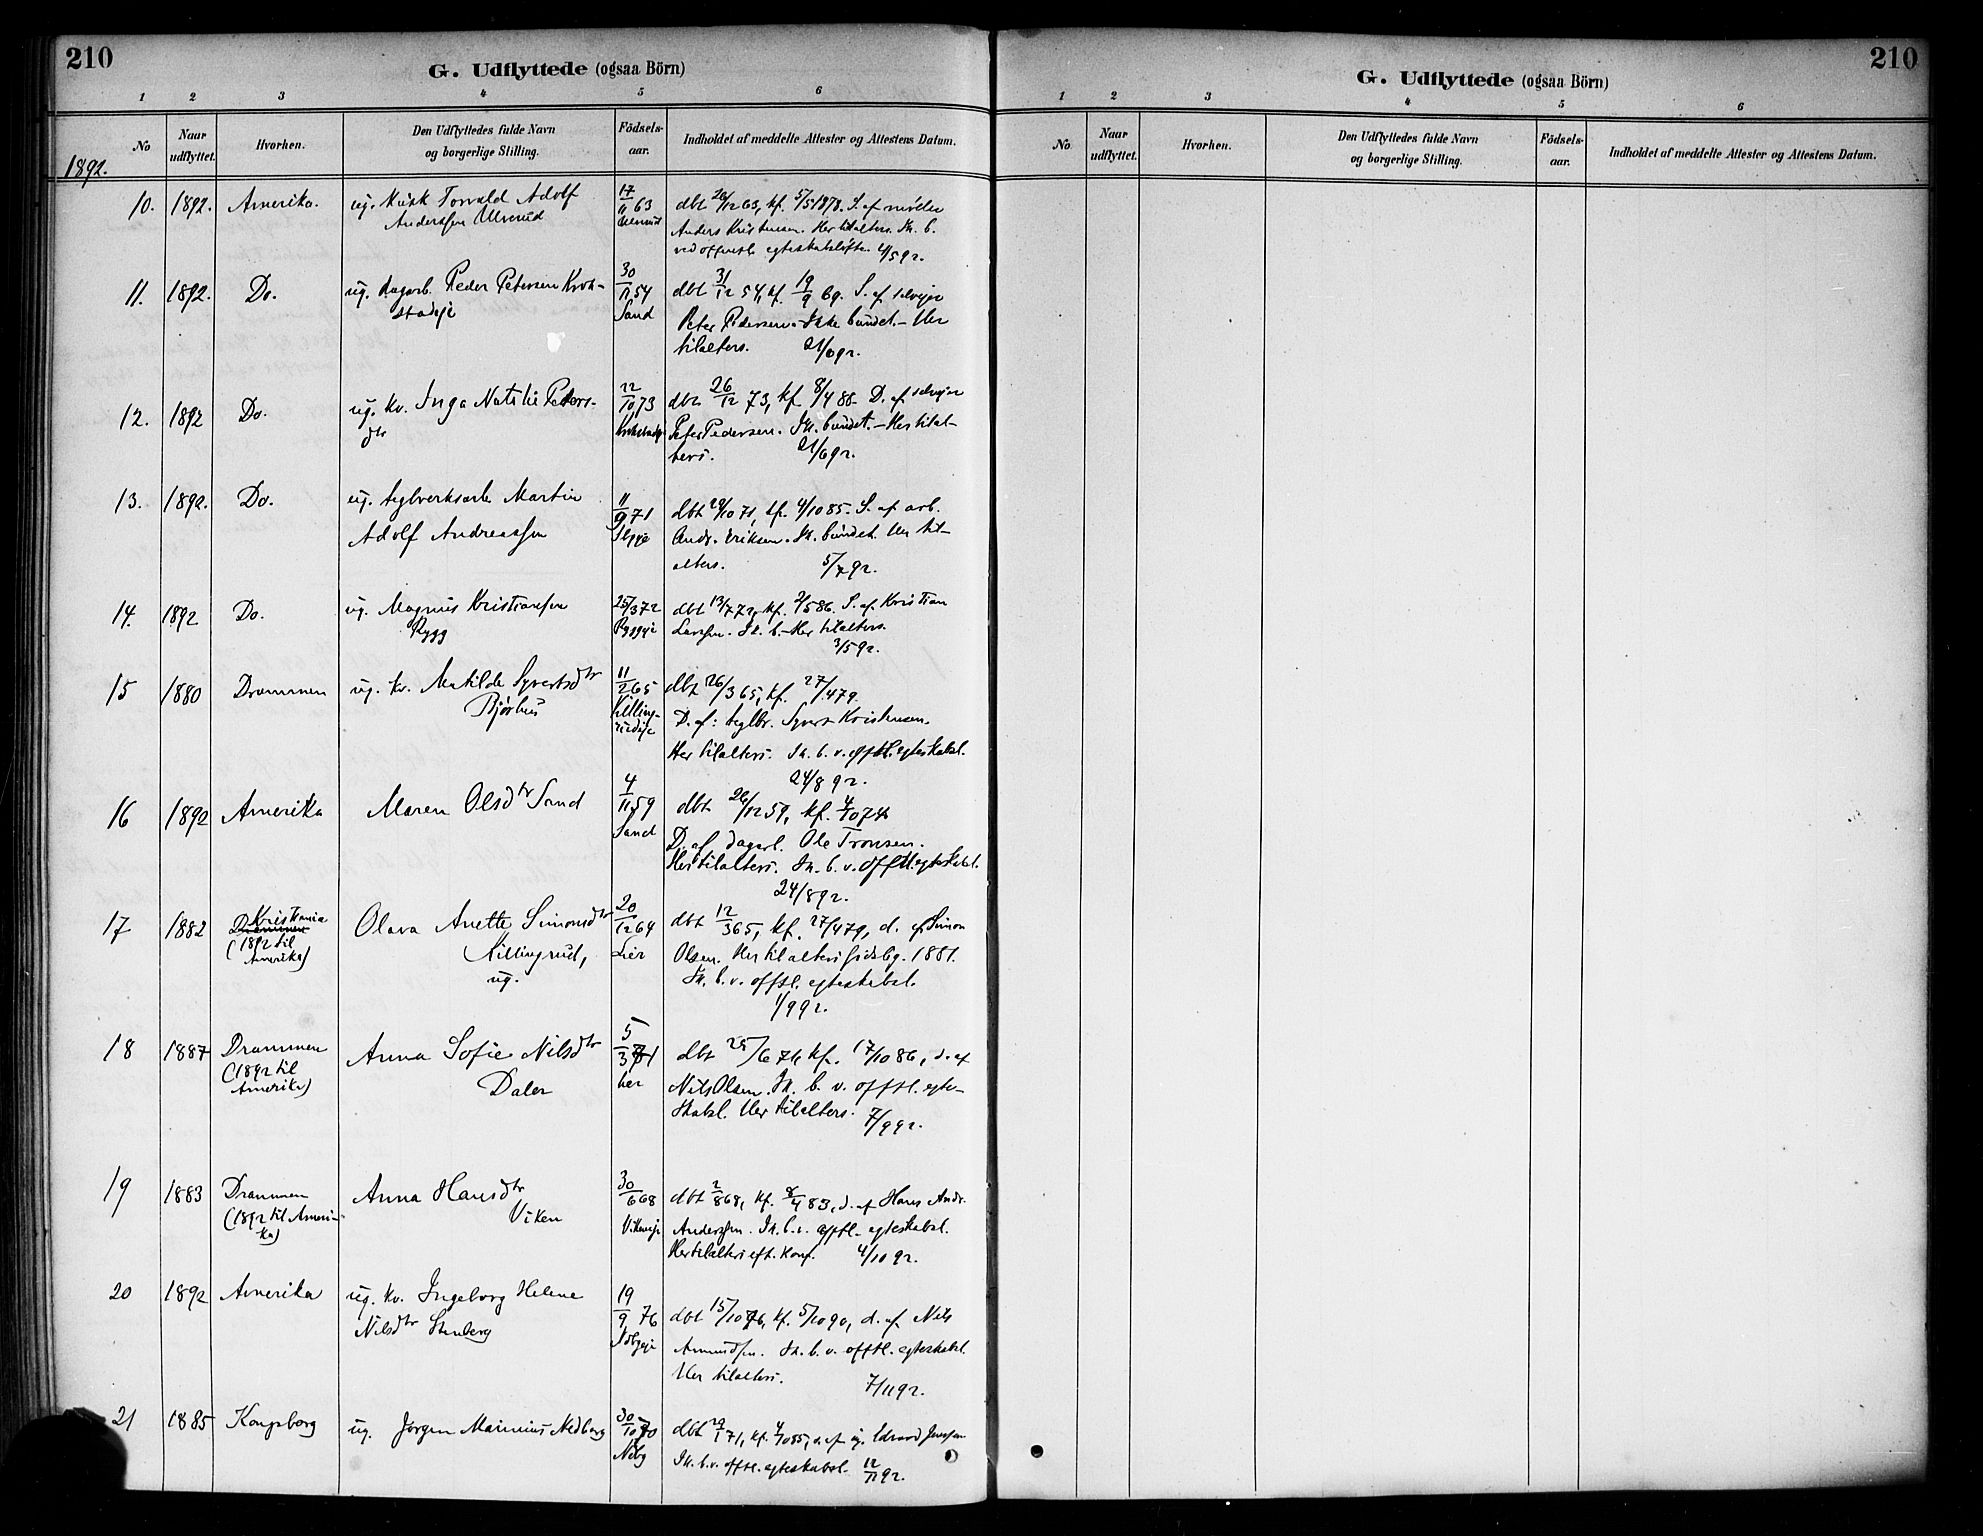 210
G. Udflyttede (ogsaa Börn)
1 2 3 4 5 6
No Naar udflyttet. Hvorhen. Den Udflyttedes fulde Navn og borgerlige Stilling. Födsels-aar. Indholdet af meddelte Attester og Attestens Datum.
1892.
10. 1892. Amerika. ug. Kusk Torvald Adolf 17/11 63 dbt 26/12 63, kf. 5/5 1878. S. af møller
Anderssen Ulverud Ulverud Anders Kristensen. Her tilalters. Ik. b.
ved offentl. egteskabsløfte. 4/5 92.
11. 1892. Do. ug. dagarb. Peder Petersen Krok- 30/11 54 dbt 31/12 54, kf. 19/9 69. S. af selvejer
stadeje Sand Peter Pedersen. Ikke bundet. – Her
tilalters. 21/6 92.
12. 1892 Do. ug. kv. Inga Natalie Peters- 22/10 73 dbt 26/12 73, kf 8/4 88. D. af selvejer
dtr Krokstadeje Peter Pedersen. Ik. bundet. – Her tilal-
ters. 21/6 92.
13. 1892. Do. ug. teglverksarb. Martin 11/9 71 dbt 29/10 71, kf. 4/10 85. S. af arb.
Adolf Andreassen Andr. Eriksen. Ik. bundet. Her til-
alters. 5/7 92.
14. 1892 Do. ug. Magnus Kristiansen 25/3 72 dbt 13/7 72, kf. 2/5 86. S. af Kristian
Rygg Ryggeje Larssen. Ik. b. – Her tilalters.
3/5 92.
15 1880 Drammen ug. kv. Matilde Syvertsdtr 11/2 65 dbt 26/3 65, kf. 27/4 79.
Bjørhus Killing-rudeje D. af: teglbr. Syvert Kristensen.
Her tilalters. Ik. b. v. offtl. egteskabsl.
24/8 92.
16 1892 Amerika Maren Olsdtr Sand 4/11 59 dbt 26/12 59, kf. 4/10 74
Sand D. af dagarb. Ole Tronsen.
Her tilalters. Ik. b. v. offtl. egteskabsl.
24/8 92.
17 1882 Kristiania Drammen Olava Anette Simonsdtr 20/12 64 dbt 12/3 65, kf. 27/4 79, d. af Simon
(1892 til Amerika) Killingrud, Lier Olsen. Her tilalters sidstg. 1881.
ug. Ik. b. v. offtl. egteskabsl.
1/9 92.
18 1887 Drammen Anna Sofie Nilsdtr 5/3 71 dbt 25/6 71, kf. 17/10 86, d. af
(1892 til Amerika) Daler Lier Nils Olsen. Ik. b. v. offtl. egte-
skabsl. Her tilalters. 7/9 92.
19 1883 Drammen Anna Hansdtr 30/6 68 dbt 2/8 68, kf. 8/4 83, d. af Hans Andr.
(1892 til Ameri-ka) Viken Vikeneje Anderssen. Ik. b. v. offtl. egteskabsl.
Her tilalters eft. konf. 4/10 92.
20 1892 Amerika ug. kv. Ingeborg Helene 19/9 76 dbt 15/10 76, kf. 5/10 90, d. af Nils
Nilsdtr Stenberg Amundsen. Ik. b. v. offtl. egteskabsl.
Her tilalters. 7/11 92.
21 1885 Kongsberg ug. Jørgen Marinius Nedberg 30/10 70 dbt 29/1 71, kf. 4/10 85, s. af ug. Edvard Jenssen
Ik. b. v. offtl. egteskabsl. 12/11 92.
210
G. Udflyttede (ogsaa Börn)
1 2 3 4 5 6
No Naar udflyttet. Hvorhen. Den Udflyttedes fulde Navn og borgerlige Stilling. Födsels-aar. Indholdet af meddelte Attester og Attestens Datum.